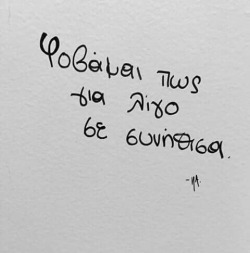 φοβάμαι πως
για λίγο
σε συνήθισα.